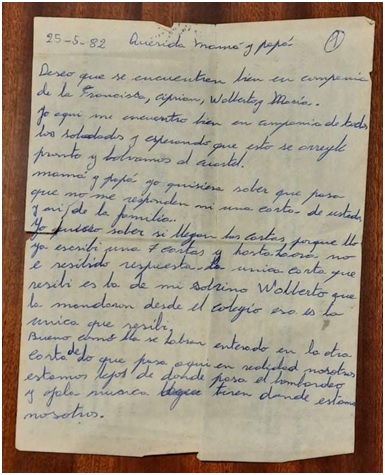 25-5-82 Querida mamá y papá 1
Deseo que se encuentren bien en compania
de la Francisca, Ciprian, Walberto y María.
Yo aqui me encuentro bien en compania de todos
los soldados y esperando que esto se arregle
pronto y bolvamos al cuartel.
mamá y papá yo quisiera saber que pasa
que no me responden ni una carta de ustedes
y ni de la familia.
Yo quiero saber si llegan las cartas, porque lla
ya escribi una 7 cartas y hasta haora no
e resibido respuesta la unica carta que
resibi es la de mi sobrino Walberto que
la mandaron desde el colegio esa es la
unica que resibi.
Bueno como lla se habran enterado en la otra
carta de lo que pasa aqui en realidad nosotros
estamos lejos de donde pasa el bombardeo
y ojala nunca tiren donde estamos
nosotros.